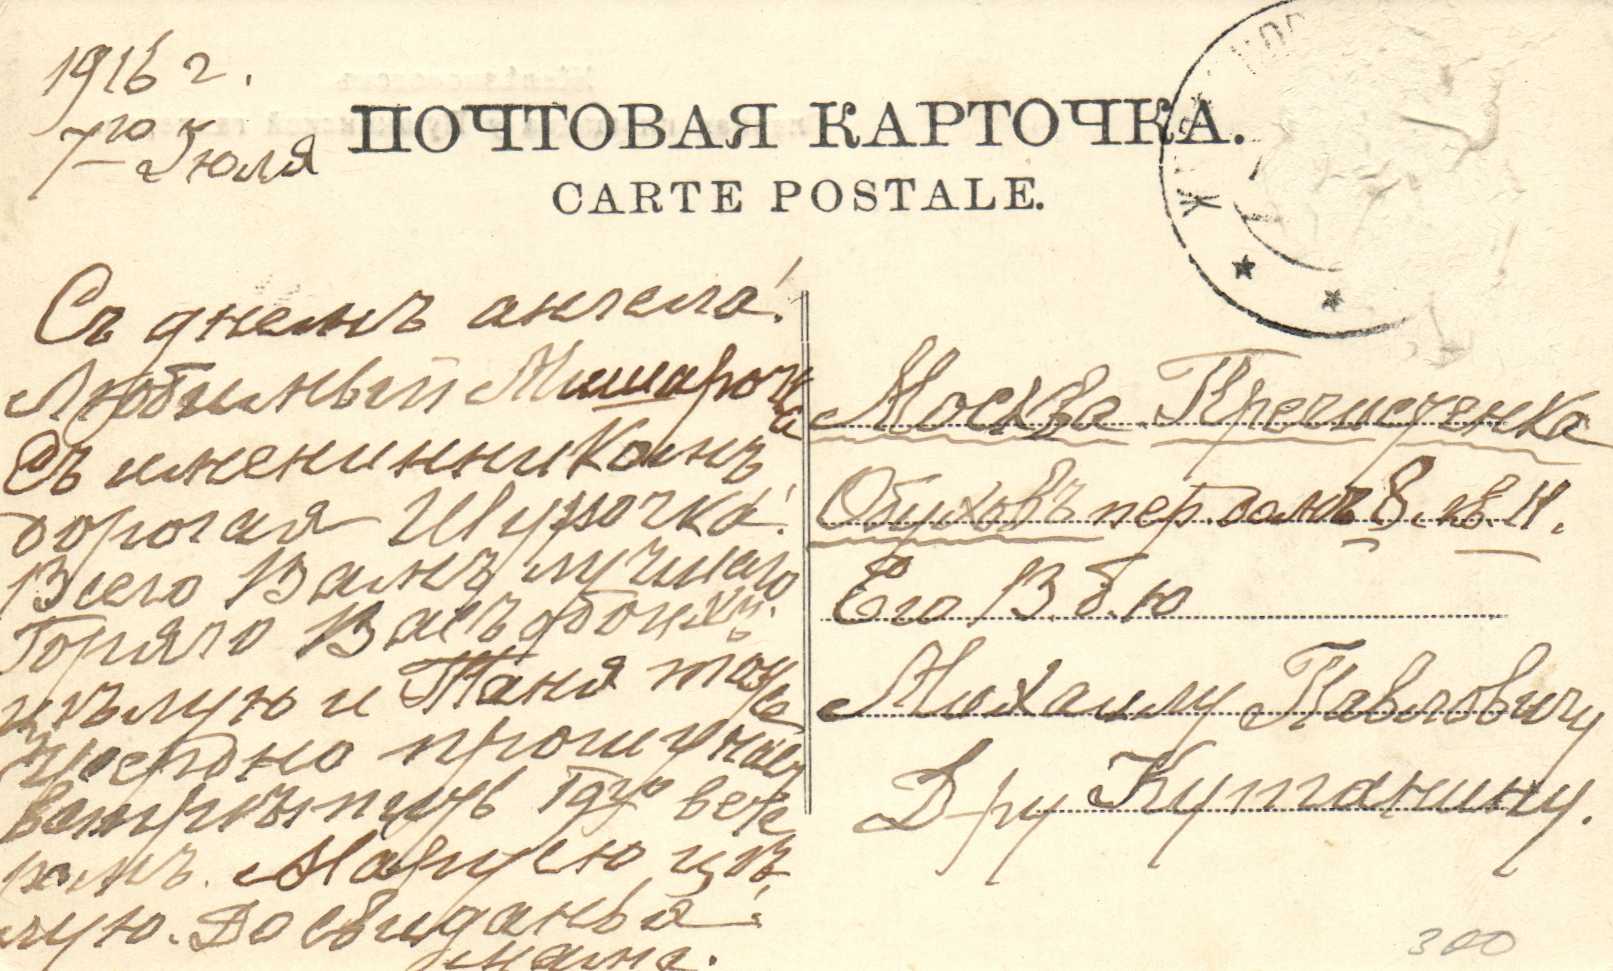 1916 г.
7го Июля
ПОЧТОВАЯ КАРТОЧКА.
CARTE POSTALE.
Съ днемъ ангела!
Любимый Мишарочка
Съ имениникомъ
дорогая Шурочка!
Всего Вамъ лучшаго
Горячо Васъ обоихъ
цѣлую и Таня тоже
прошу
встрѣтить вече
ромъ. Марусю цѣ
лую. До свиданья
мама.
Москва. Пречистенка
Обуховъ пер. домъ 8. кв. 11.
Его В. б. ю
Михаилу Павловичу
Д-ру Кутанину.
300